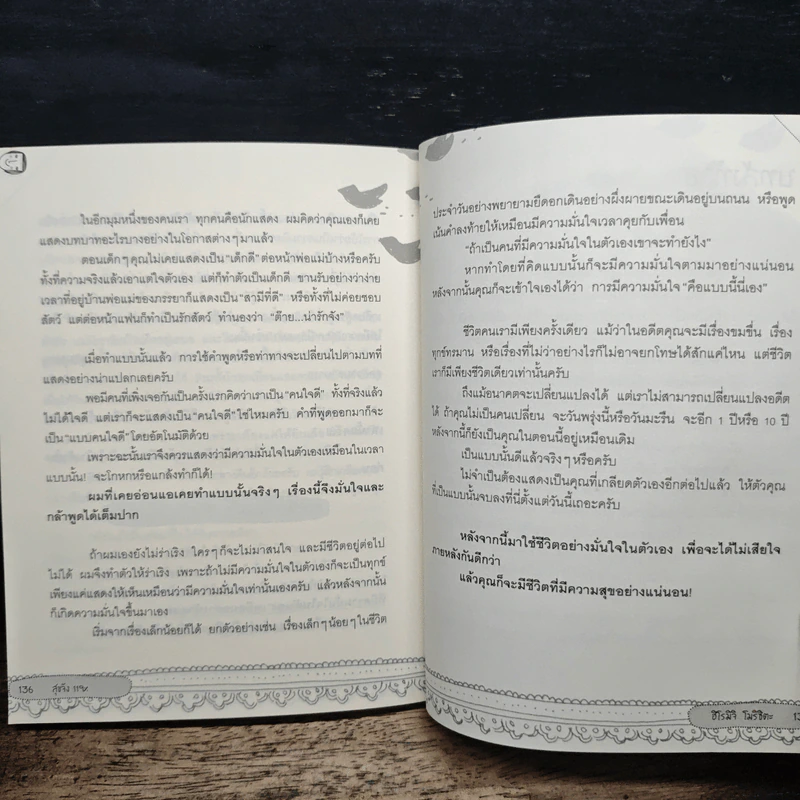 ในอีกมุมหนึ่งของคนเรา ทุกคนคือนักแสดง ผมคิดว่าคุณเองก็เคย
แสดงบทบาทอะไรบางอย่างในโอกาสต่างๆ มาแล้ว
ตอนเด็กๆ คุณไม่เคยแสดงเป็น "เด็กดี" ต่อหน้าพ่อแม่บ้างหรือครับ
ทั้งที่ความจริงแล้วเอาแต่ใจตัวเอง แต่ก็ทำตัวเป็นเด็กดี ขานรับอย่างว่าง่าย
เวลาที่อยู่บ้านพ่อแม่ของภรรยาก็แสดงเป็น "สามีที่ดี" หรือทั้งที่ไม่ค่อยชอบ
สัตว์ แต่ต่อหน้าแฟนก็ทำเป็นรักสัตว์ ทำนองว่า "ต๊าย...น่ารักจัง"
เมื่อทำแบบนั้นแล้ว การใช้คำพูดหรือท่าทางจะเปลี่ยนไปตามบทที่
แสดงอย่างน่าแปลกเลยครับ
พอมีคนที่เพิ่งเจอกันเป็นครั้งแรกคิดว่าเราเป็น "คนใจดี" ทั้งที่จริงแล้ว
ไม่ได้ใจดี แต่เราก็จะแสดงเป็น "คนใจดี" ใช่ไหมครับ คำที่พูดออกมาก็จะ
เป็น "แบบคนใจดี" โดยอัตโนมัติด้วย
เพราะฉะนั้นเราจึงควรแสดงว่ามีความมั่นใจในตัวเองเหมือนในเวลา
แบบนั้น! จะโกหกหรือแกล้งทำก็ได้!
ผมที่เคยอ่อนแอเคยทำแบบนั้นจริงๆ เรื่องนี้จึงมั่นใจและ
กล้าพูดได้เต็มปาก
ถ้าผมเองยังไม่ร่าเริง ใครๆ ก็จะไม่มาสนใจ และมีชีวิตอยู่ต่อไป
ไม่ได้ ผมจึงทำตัวให้ร่าเริง เพราะถ้าไม่มีความมั่นใจในตัวเองก็จะเป็นทุกข์
เพียงแค่แสดงให้เห็นเหมือนว่ามีความมั่นใจเท่านั้นเองครับ แล้วหลังจากนั้น
ก็เกิดความมั่นใจขึ้นมาเอง
เริ่มจากเรื่องเล็กน้อยก็ได้ ยกตัวอย่างเช่น เรื่องเล็กๆ น้อยๆ ในชีวิต
136
ประจำวันอย่างพยายามยืดอกเดินอย่างผึ่งผายขณะเดินอยู่บนถนน หรือพูด
เน้นคำลงท้ายให้เหมือนมีความมั่นใจเวลาคุยกับเพื่อน
"ถ้าเป็นคนที่มีความมั่นใจในตัวเองเขาจะทำยังไง"
หากทำโดยที่คิดแบบนั้นก็จะมีความมั่นใจตามมาอย่างแน่นอน
หลังจากนั้นคุณก็จะเข้าใจเองได้ว่า การมีความมั่นใจ "คือแบบนี้นี่เอง"
ชีวิตคนเรามีเพียงครั้งเดียว แม้ว่าในอดีตคุณจะมีเรื่องขมขื่น เรื่อง
ทุกข์ทรมาน หรือเรื่องที่ไม่ว่าอย่างไรก็ไม่อาจยกโทษได้สักแค่ไหน แต่ชีวิต
เราก็มีเพียงชีวิตเดียวเท่านั้นครับ
ถึงแม้อนาคตจะเปลี่ยนแปลงได้ แต่เราไม่สามารถเปลี่ยนแปลงอดีต
ได้ ถ้าคุณไม่เป็นคนเปลี่ยน จะวันพรุ่งนี้หรือวันมะรืน จะอีก 1 ปีหรือ 10 ปี
หลังจากนี้ก็ยังเป็นคุณในตอนนี้อยู่เหมือนเดิม
เป็นแบบนั้นดีแล้วจริงๆ หรือครับ
ไม่จำเป็นต้องแสดงเป็นคุณที่เกลียดตัวเองอีกต่อไปแล้ว ให้ตัวคุณ
ที่เป็นแบบนั้นจบลงที่นี่ตั้งแต่วันนี้เถอะครับ
หลังจากนี้มาใช้ชีวิตอย่างมั่นใจในตัวเอง เพื่อจะได้ไม่เสียใจ
ภายหลังกันดีกว่า
แล้วคุณก็จะมีชีวิตที่มีความสุขอย่างแน่นอน!
ฮิโรมิจิ โมริชิตะ